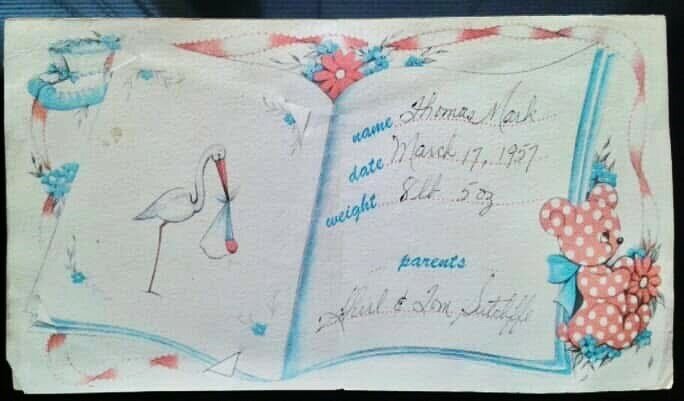 name Thomas Mark
date March 17, 1957
weight 8 lb 5 oz
parents
& Tom Sutcliffe